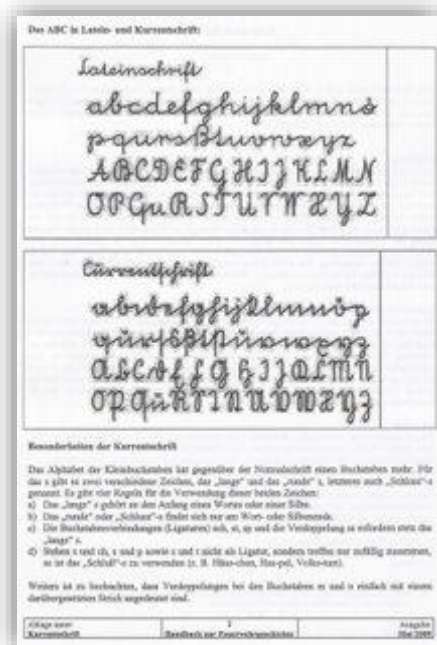 Das ABC in Latein- und Kurrentschrift:
Lateinschrift
abcdefghijklmno
pqursßtuvwxyz
ABCDEFGHIJKLMN
OPQuRSTUVWXYZ
Currentschrift
abcdefghijklmnop
qursßtuvwxyz
ABCDEFGHIJKLMN
OPQuRSTUVWXYZ
Besonderheiten der Kurrentschrift
Das Alphabet der Kleinbuchstaben hat gegenüber der Normalschrift einen Buchstaben mehr. Für
das s gibt es zwei verschiedene Zeichen, das „lange“ und das „runde“ s, letzteres auch „Schluss“-s
genannt. Es gibt vier Regeln für die Verwendung dieser beiden Zeichen:
a) Das „lange“ s gehört an den Anfang eines Wortes oder einer Silbe.
b) Das „runde“ oder „Schluss“-s findet sich nur am Wort- oder Silbenende.
c) Die Buchstabenverbindungen (Ligaturen) sch, st, sp und die Verdoppelung ss erfordern stets das
„lange“ s.
d) Stehen s und ch, s und p sowie s und t nicht als Ligatur, sondern treffen nur zufällig zusammen,
so ist das „Schluß“-s zu verwenden (z. B. Häus-chen, Haspel, Volks-tum).
Weiters ist zu beobachten, dass Verdoppelungen bei den Buchstaben m und n einfach mit einem
darübergesetzten Strich angedeutet sind.
Ablage unter 2 Ausgabe
Kurrentschrift Handbuch zur Feuerwehrgeschichte Mai 2009